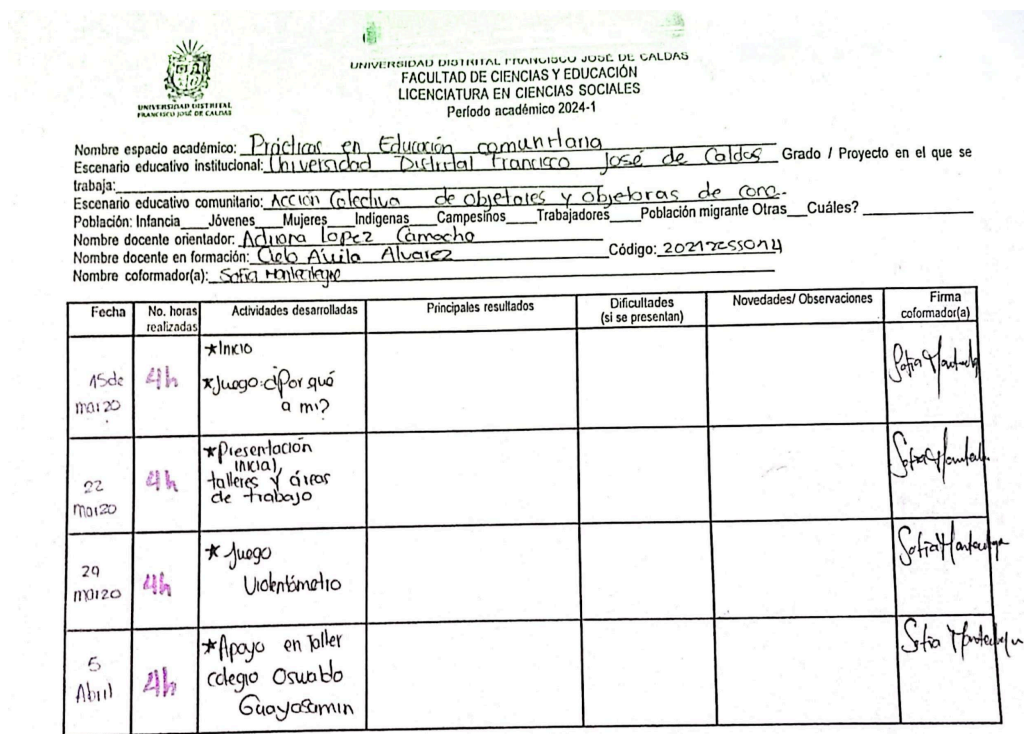 UNIVERSIDAD DISTRITAL FRANCISCO JOSÉ DE CALDAS
FACULTAD DE CIENCIAS Y EDUCACIÓN
LICENCIATURA EN CIENCIAS SOCIALES
Período académico 2024-1
UNIVERSIDAD DISTRITAL
FRANCISCO JOSÉ DE CALDAS
Nombre espacio académico: Prácticas en Educación comunitaria
Escenario educativo institucional: Universidad Distrital Francisco José de Caldas Grado / Proyecto en el que se
trabaja:
Escenario educativo comunitario: Acción Colectiva de objetores y objetoras de conc..
Población: Infancia___Jóvenes___Mujeres___Indígenas___Campesinos___Trabajadores___Población migrante Otras__Cuáles?
Nombre docente orientador: Adriana Lopez Camacho
Nombre docente en formación: Cielo Avila Alvarez Código: 20212255014
Nombre coformador(a): Sofia Montenegro
Fecha No. horas realizadas Actividades desarrolladas Principales resultados Dificultades (si se presentan) Novedades/ Observaciones Firma coformador(a)
15 de marzo 4h
*Inicio
*Juego: ¿Por qué
a mi?
Sofia
22 marzo 4h
*Presentación
inicial,
talleres y áreas
de trabajo
Sofia
29 marzo 4h
* Juego
Violentómetro
Sofia
5 Abril 4h
*Apoyo en Taller
colegio Oswaldo
Guayasamin
Sofia